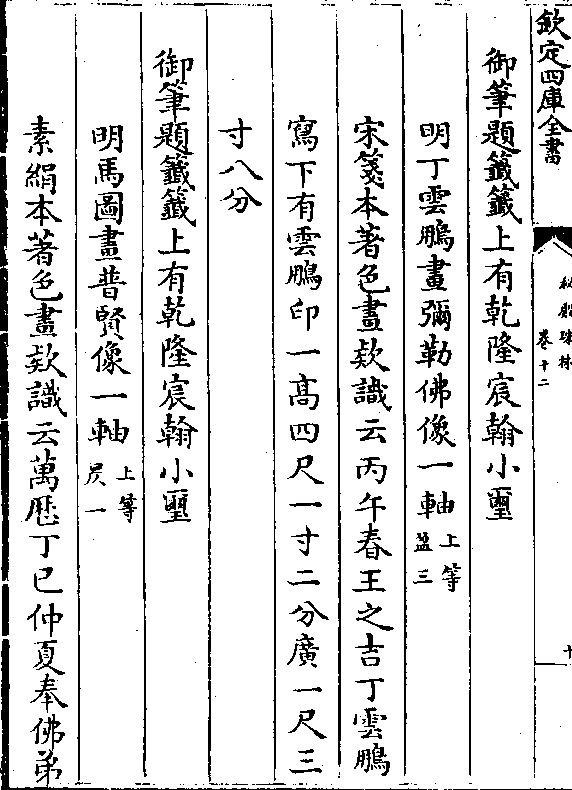 欽定四庫全書
秘殿珠林
卷十二
十
御筆題籤籤上有乾隆宸翰小璽
明丁雲鵬畫彌勒佛像一軸上等盈三
宋箋本著色畫欵識云丙午春王之吉丁雲鵬
寫下有雲鵬印一高四尺一寸二分廣一尺三
寸八分
御筆題籤籤上有乾隆宸翰小璽
明馬圖畫普賢像一軸上等昃一
素絹本著色畫欵識云萬歷丁巳仲夏奉佛弟